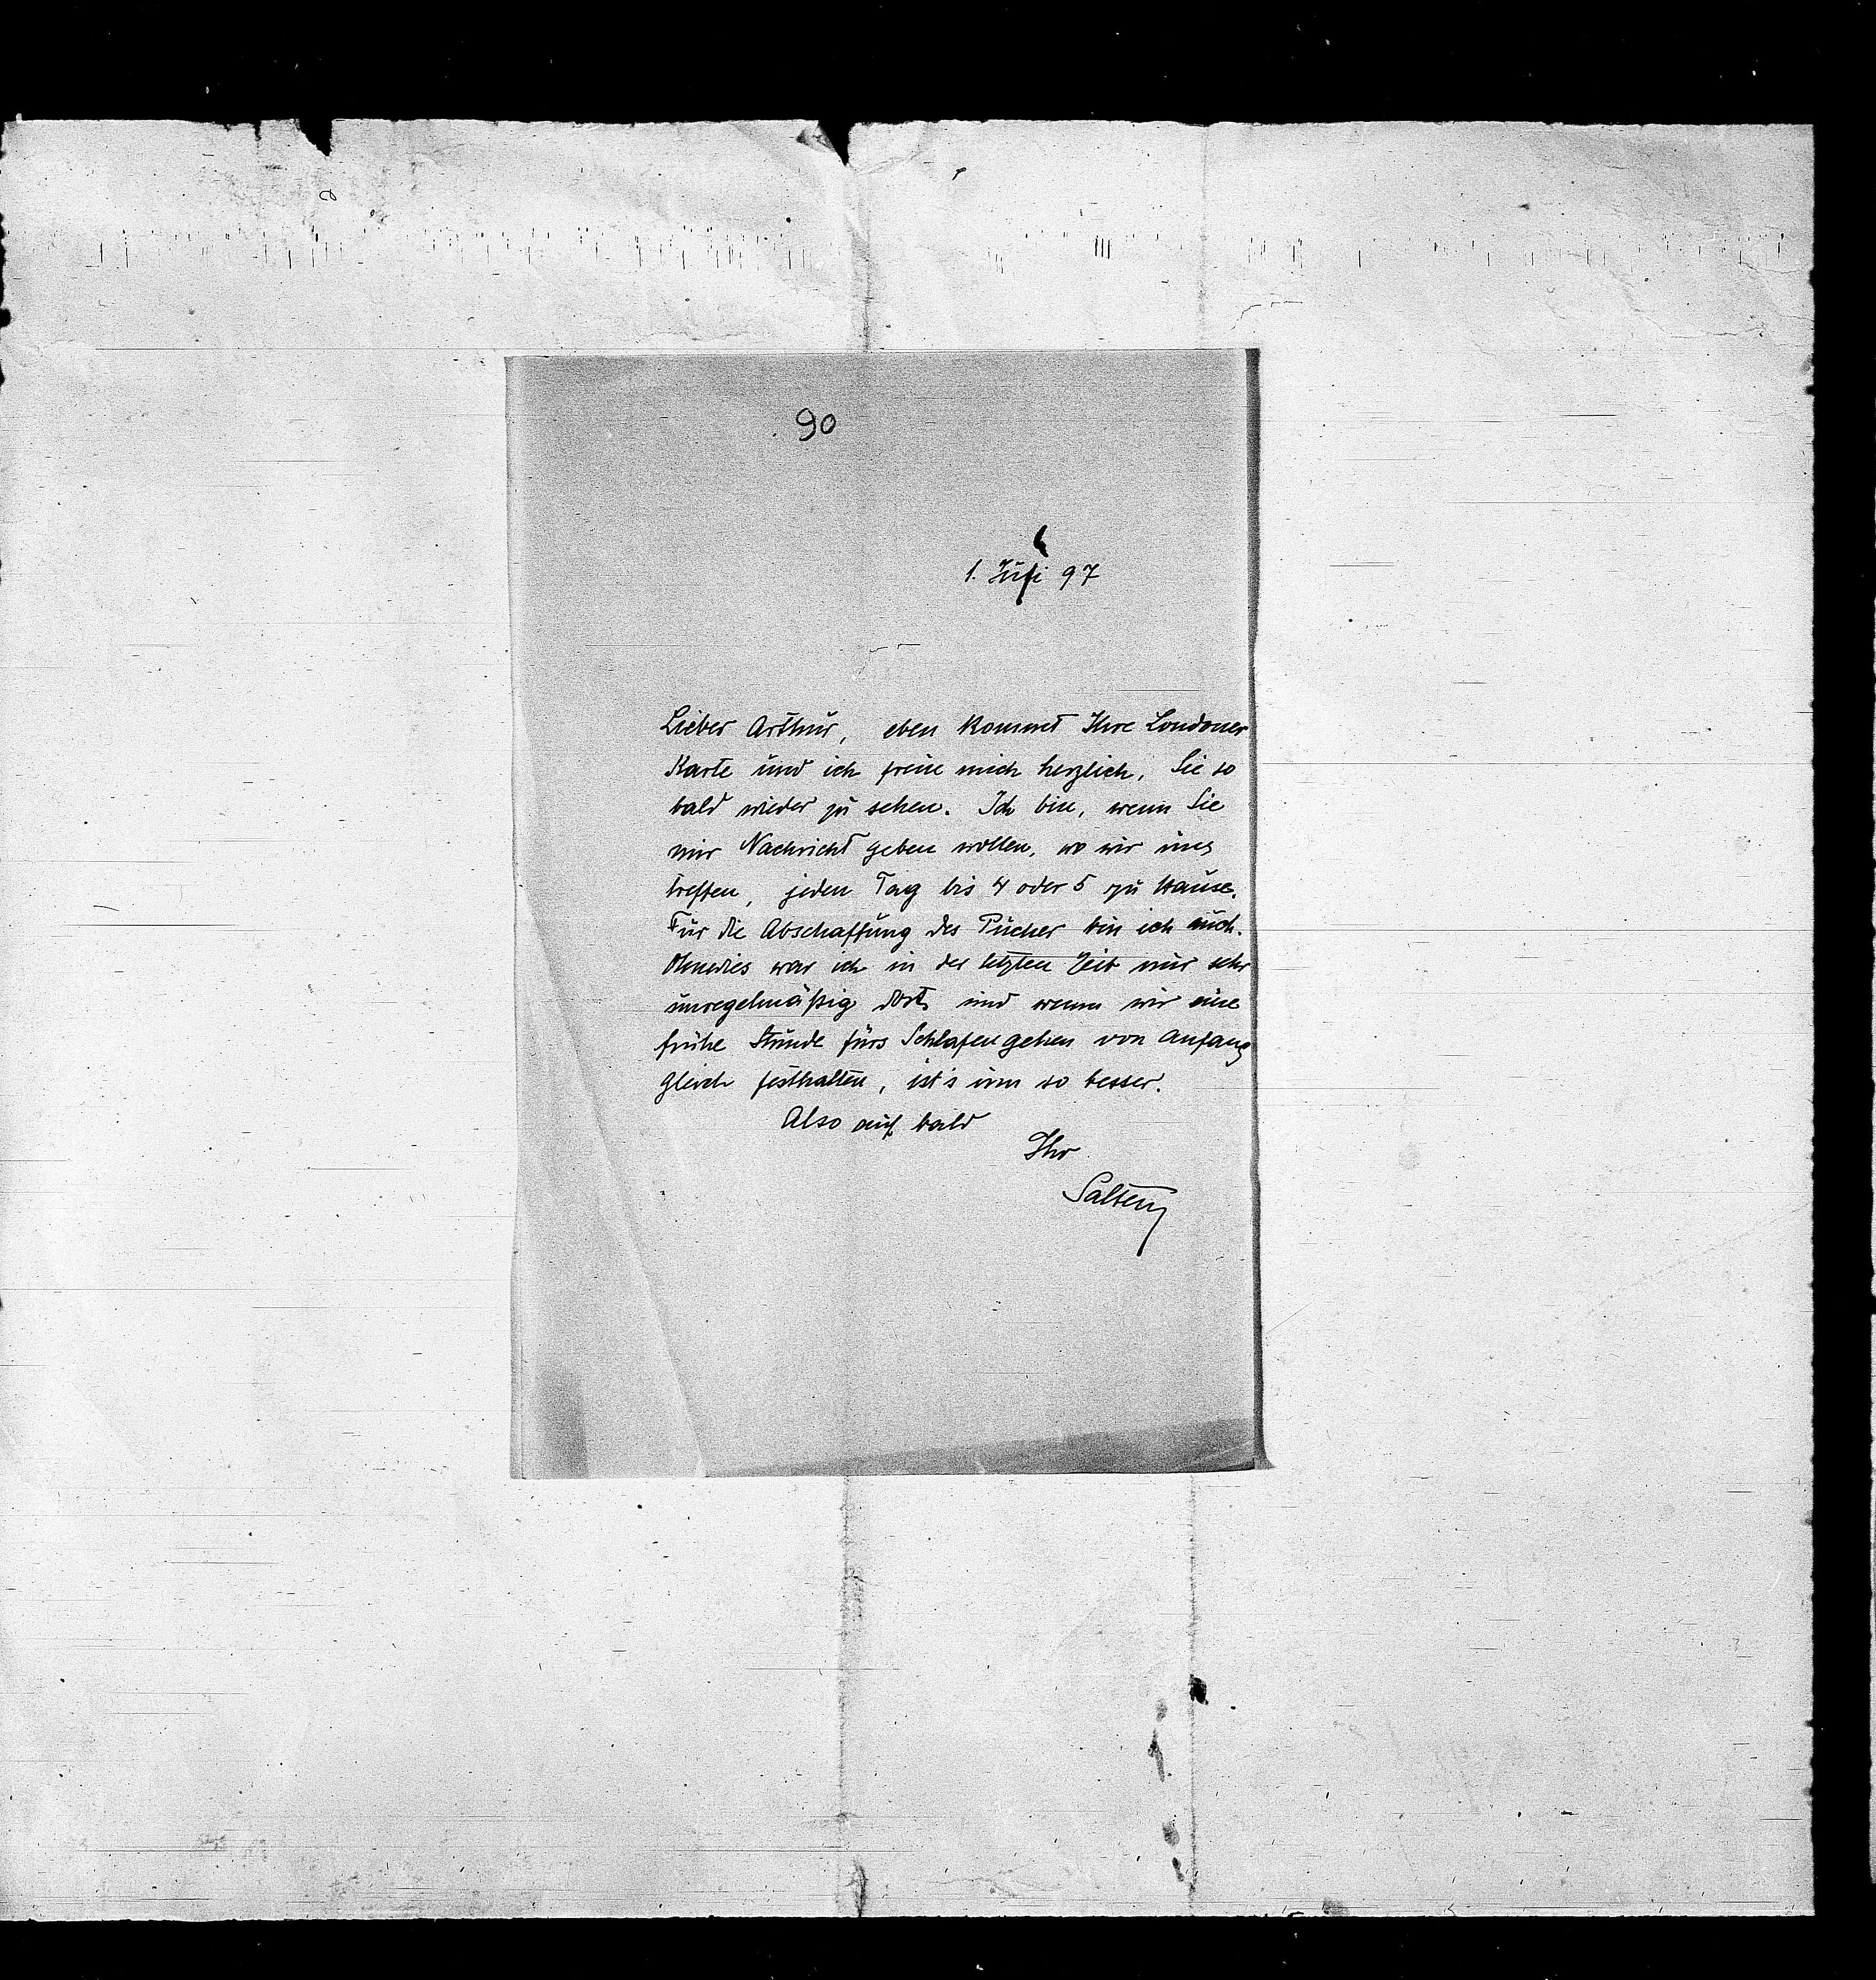 90
6
1. Juni 97
Lieber Arthur, eben kommt Ihre Londoner
Karte und ich freue mich herzlich, Sie so
bald wieder zu sehen. Ich bin, wenn Sie
mir Nachricht geben wollen, wo wir uns
treffen, jeden Tag bis 4 oder 5 zu Hause.
Für die Abschaffung des Pucher bin ich auch.
Ohnedies war ich in der letzten Zeit nur sehr
unregelmäßig dort, und wenn wir eine
frühe Stunde fürs Schlafengehen von Anfang
gleich festhalten, ist's um so besser.
Also auf bald
Ihr
Salten